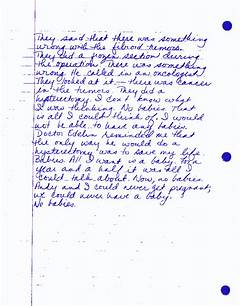 They said that there was something
wrong with the fibroid tumors.
They did a frozen section during
the operation. There was something
wrong. He called in an oncologist.
They looked at it - there was cancer
in the tumors. They did a
hysterectomy. I can't know what
I was thinking. No babies. That
is all I could think of. I would
not be able to have any babies.
Doctor Edelin reminded me that
the only way he would do a
hysterectomy was to save my life.
Babies. All I want is a baby. For a
year and a half it was all I
could talk about. Now, no babies.
Andy and I could never get pregnant,
we could never have a baby.
No babies.